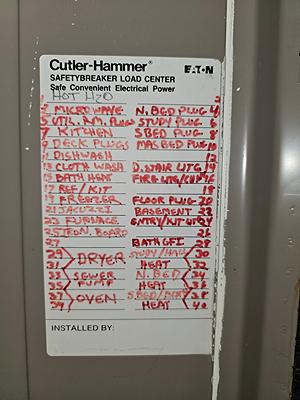 Cutler-Hammer® EATON
SAFETYBREAKER LOAD CENTER
Safe Convenient Electrical Power
HOT H2O
3 MICROWAVE N. BED PLUG 4
5 UTIL. RM. PLUG STUDY PLUG 6
7 KITCHEN S BED PLUG 8
9 DECK PLUGS MAS BED PLUG 10
11 DISHWASH 12
13 CLOTH WASH D. STAIR LITG 14
15 BATH HEAT FIRE LITE/
17 REF/KIT 18
19 FREEZER FLOOR PLUG 20
21 JACUZZI BASEMENT 22
23 FURNACE ENTRY/KIT LITG 24
25 IRON. BOARD 26
27 BATH GFI 28
29 DRYER STUDY/HALL 30
31 HEAT 32
33 SEWER PUMP N. BED 34
35 HEAT 36
37 OVEN S BED/BATH 38
39 HEAT 40
INSTALLED BY: